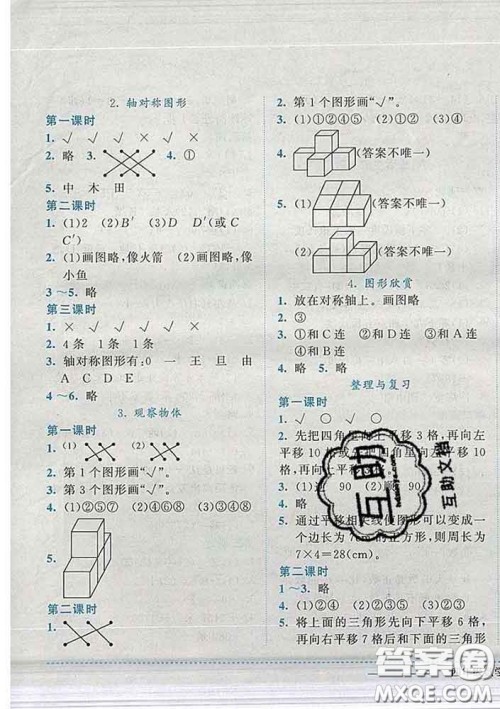 2. 轴对称图形
第一课时
1. √ √ √ × √ ×
2. 略 3. 4. ①
5. 中 木 田
第二课时
1. (1)2 (2)B′ (3)D D′(或C
C′)
2. (1)画图略,像火箭 (2)画图略,像
小鱼
3～5. 略
第三课时
1. × √ √ √ × √
2. 4条 1条 1条
3. 轴对称图形有:0 一 王 旦 由
A C D E
4～6. 略
3. 观察物体
第一课时
1. (1) (2)
2. 第1个图形画“√”。
3. 第3个图形画“√”。
4. (1)②⑤⑦ (2)①⑥⑧
5.
第二课时
1.
2. 第1个图形画“√”。
3. (1)①②④⑤ (2)①② (3)④
4. (答案不唯一)
5. (1) (答案不唯一)
(2) (答案不唯一)
4. 图形欣赏
1. 放在对称轴上。画图略
2. ③
3. ①和C连 ②和D连 ③和A连
④和B连
4. 略 5. 略
整理与复习
第一课时
1. √ ○ √ ○
2. 先把四角星向上平移3格,再向左
平移10格或先把四角星向左平移
10格,再向上平移3格
3. (1) 90 (2) 90
4. 略
5. 通过平移相关线使图形可以变成一
个边长为7cm的正方形,则周长为
7×4=28(cm)。
第二课时
1～3. 略
4. (1)②④ (2)①⑤ (3)③⑥
5. 将上面的三角形先向下平移6格,
再向右平移9格后和下面的三角形
互助
互助文档
答案圈
MXQE.COM